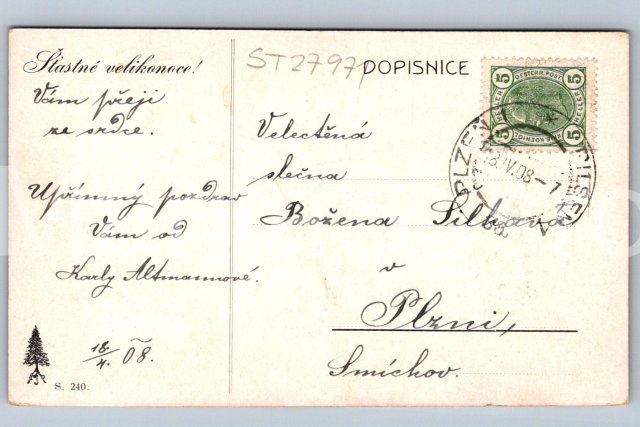 Šťastné velikonoce!
Vám přeji
ze srdce.
Upřímný pozdrav
Vám od
Karly Altmannové.
18./4. 08.
S. 240.
ST2797
DOPISNICE
Velectěná
slečna
Božena
v
Plzni,
Smíchov.
5 OESTERR. POST 5
5 5
PLZEŇ
PILSEN
18.IV.08-7